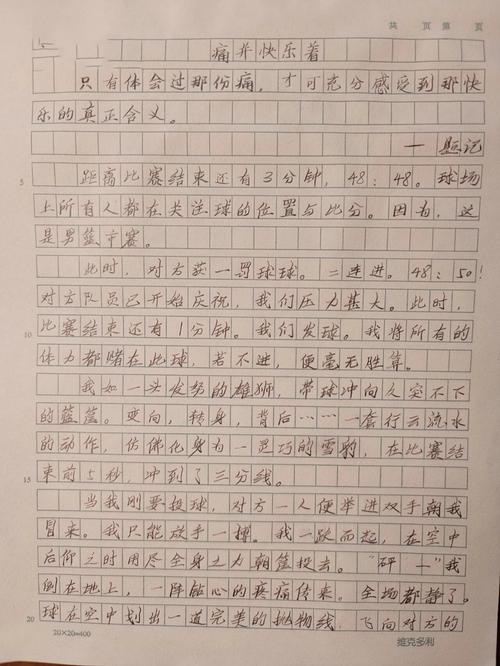 共 页 第 页
痛并快乐着
只有体会过那份痛，才可充分感受到那快
乐的真正含义。
—题记
5 距离比赛结束还有3分钟，48：48。球场
上所有人都在关注球的位置与比分。因为，这
是男篮市赛。
此时，对方获一罚球球。二连进。48：50！
对方队员已开始庆祝，我们压力甚大。此时，
10 比赛结束还有1分钟。我们发球。我将所有的
体力都赌在此球，若不进，便毫无胜算。
我如一头发怒的雄狮，带球冲向久突不下
的篮筐。变向，转身，背后……一套行云流水
的动作，仿佛化身为一灵巧的雪豹，在比赛结
15 束前5秒，冲到了三分线。
当我刚要投球，对方一人便举进双手朝我
冒来。我只能放手一搏。我一跃而起，在空中
后仰之时用尽全身之力朝筐投去。“砰—”我
倒在地上，一阵钻心的疼痛传来。全场都静了。
20 球在空中划出一道完美的抛物线，飞向对方的
20×20=400 维克多利